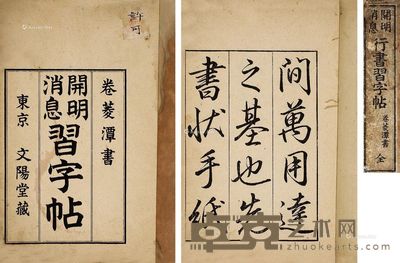 許可
卷菱潭書
開明
消息
習字帖
東京 文陽堂藏
間萬用達
之基也先
書状手紙
開明
消息
行書習字帖
卷菱潭書
全
zhuokearts.com